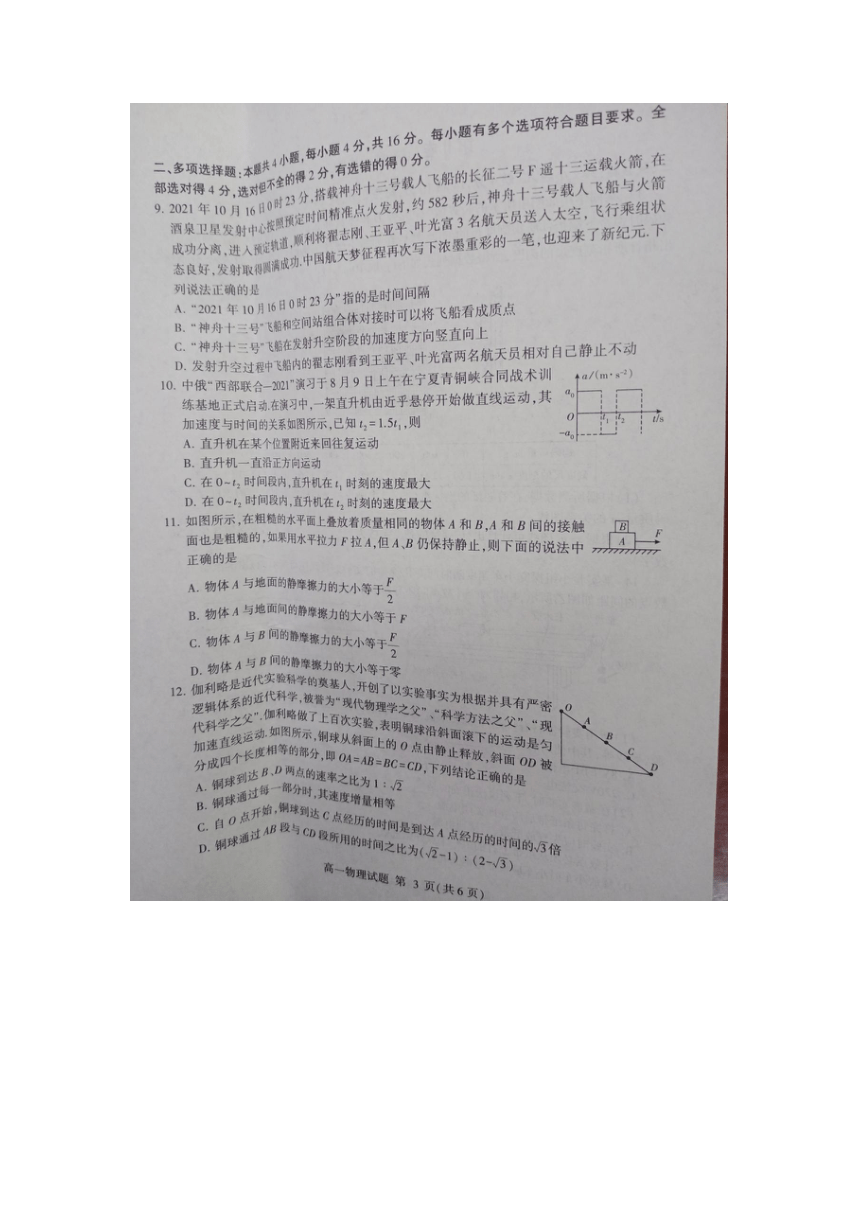 二、多项选择题:本题共4小题,每小题4分,共16分。每小题有多个选项符合题目要求。全
部选对得4分,选对但不全的得2分,有选错的得0分。
9. 2021年10月16日0时23分,搭载神舟十三号载人飞船的长征二号F遥十三运载火箭,在
酒泉卫星发射中心按照预定时间精准点火发射,约582秒后,神舟十三号载人飞船与火箭
成功分离,进入预定轨道,顺利将翟志刚、王亚平、叶光富3名航天员送入太空,飞行乘组状
态良好,发射取得圆满成功.中国航天梦征程再次写下浓墨重彩的一笔,也迎来了新纪元.下
列说法正确的是
A. “2021年10月16日0时23分”指的是时间间隔
B. “神舟十三号”飞船和空间站组合体对接时可以将飞船看成质点
C. “神舟十三号”飞船在发射升空阶段的加速度方向竖直向上
D. 发射升空过程中飞船内的翟志刚看到王亚平、叶光富两名航天员相对自己静止不动
10. 中俄“西部联合—2021”演习于8月9日上午在宁夏青铜峡合同战术训
练基地正式启动.在演习中,一架直升机由近乎悬停开始做直线运动,其
加速度与时间的关系如图所示,已知t₂=1.5t₁,则
a/(m·s⁻²)
a₀
O
t₁
t₂
t/s
-a₀
A. 直升机在某个位置附近来回往复运动
B. 直升机一直沿正方向运动
C. 在0~t₂时间段内,直升机在t₁时刻的速度最大
D. 在0~t₂时间段内,直升机在t₂时刻的速度最大
11. 如图所示,在粗糙的水平面上叠放着质量相同的物体A和B,A和B间的接触
面也是粗糙的,如果用水平拉力F拉A,但A、B仍保持静止,则下面的说法中
正确的是
B
A
F
A. 物体A与地面的静摩擦力的大小等于F/2
B. 物体A与地面间的静摩擦力的大小等于F
C. 物体A与B间的静摩擦力的大小等于F/2
D. 物体A与B间的静摩擦力的大小等于零
12. 伽利略是近代实验科学的奠基人,开创了以实验事实为根据并具有严密
逻辑体系的近代科学,被誉为“现代物理学之父”、“科学方法之父”、“现
代科学之父”.伽利略做了上百次实验,表明铜球沿斜面滚下的运动是匀
加速直线运动.如图所示,铜球从斜面上的O点由静止释放,斜面OD被
分成四个长度相等的部分,即OA=AB=BC=CD,下列结论正确的是
O
A
B
C
D
A. 铜球到达B、D两点的速率之比为1:√2
B. 铜球通过每一部分时,其速度增量相等
C. 自O点开始,铜球到达C点经历的时间是到达A点经历的时间的√3倍
D. 铜球通过AB段与CD段所用的时间之比为(√2-1):(2-√3)
高一物理试题 第3页(共6页)